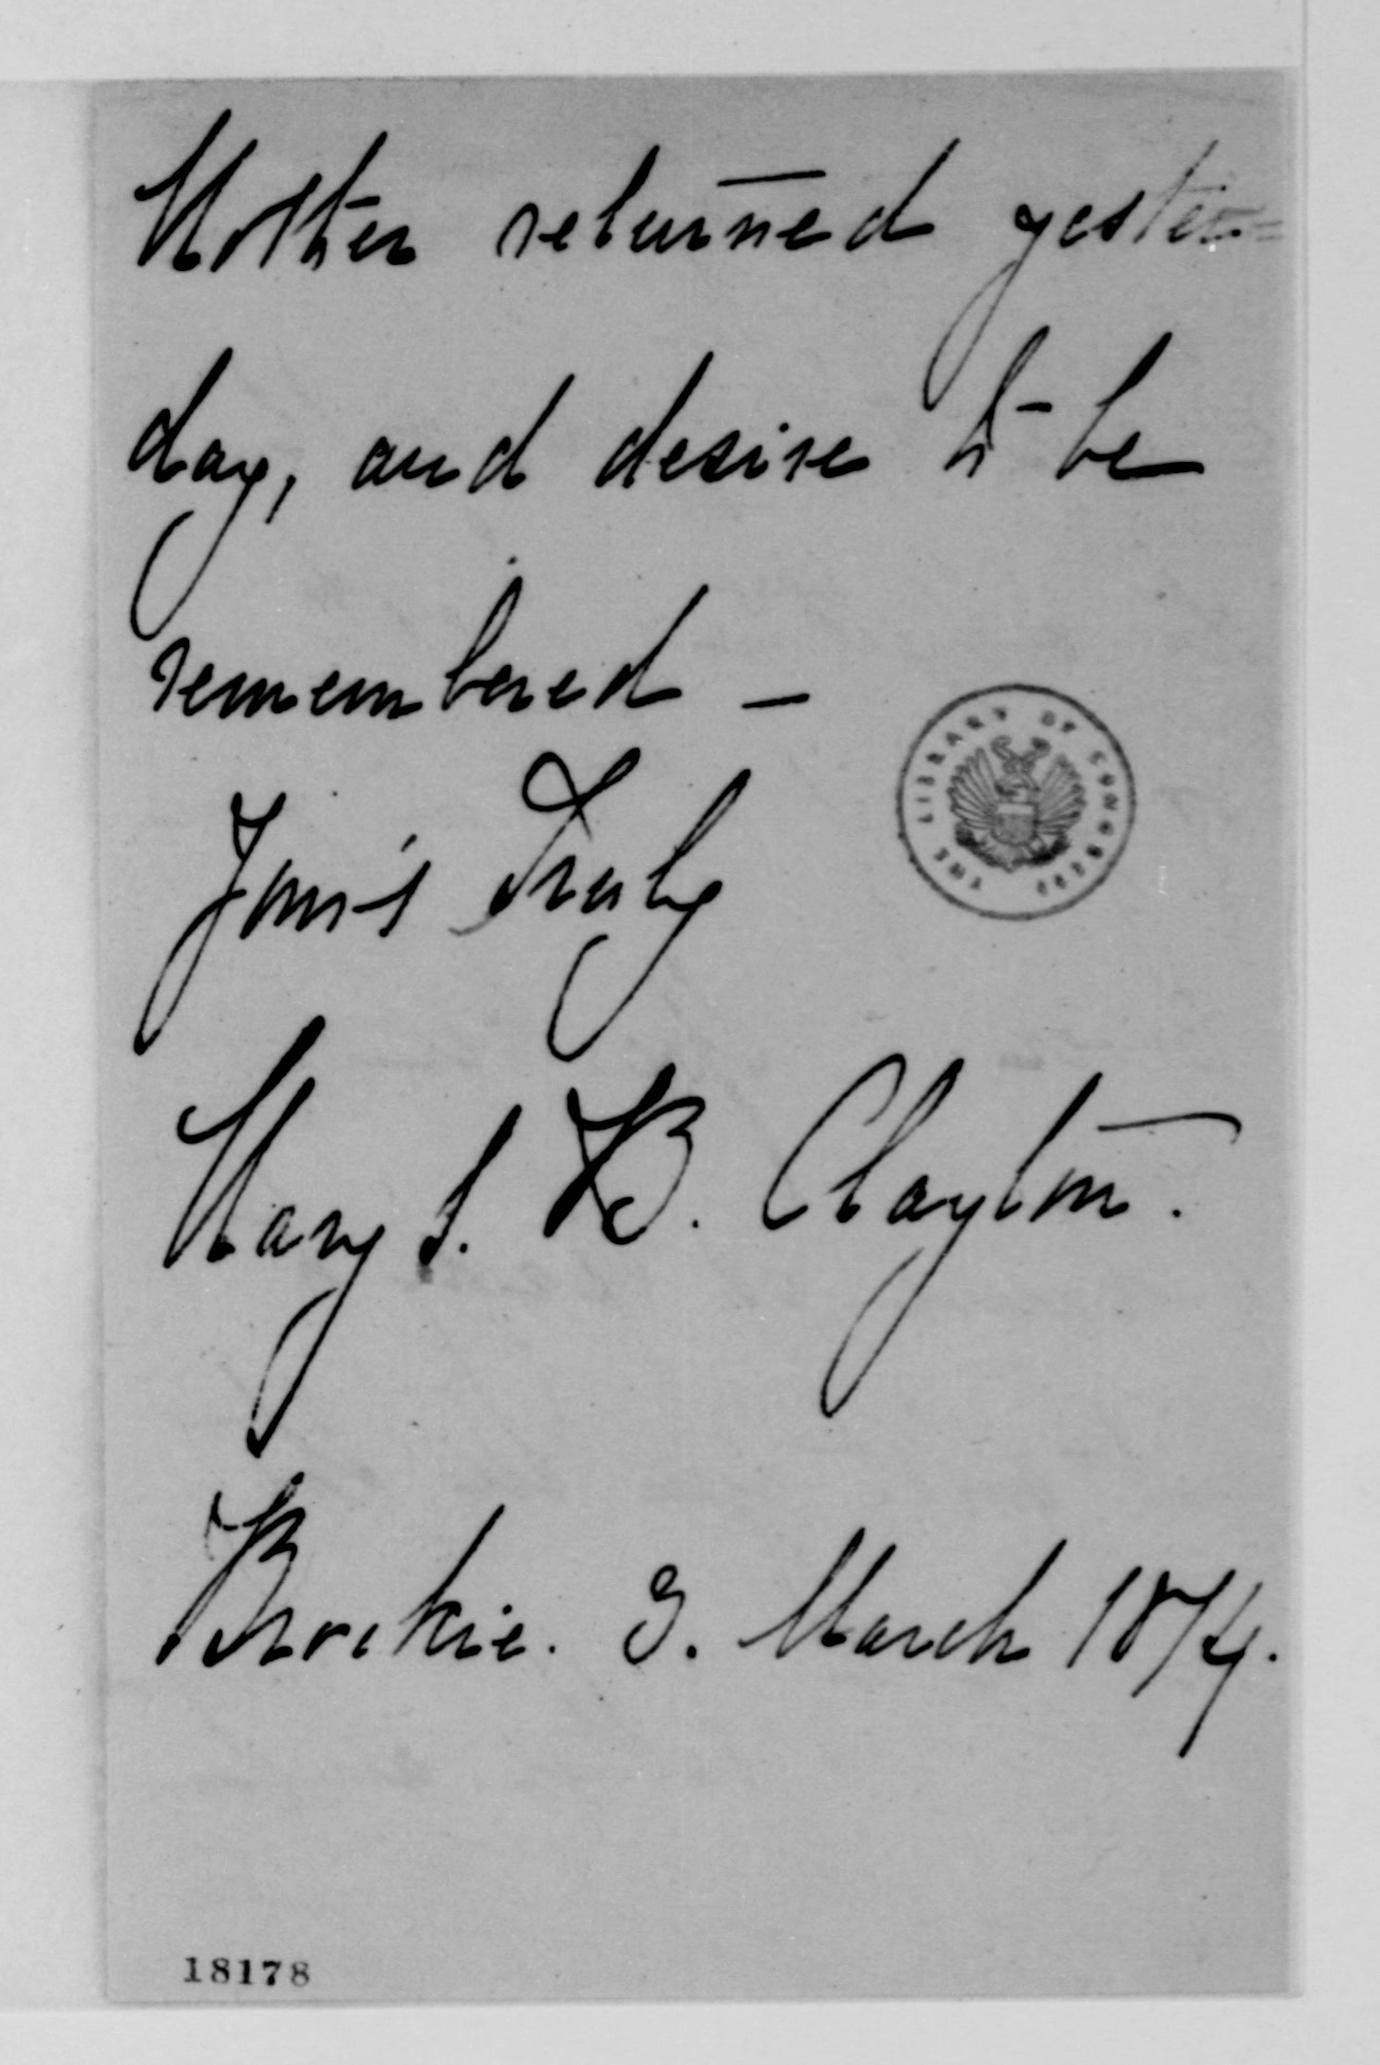 Mother returned yester=
day, and desire to be
remembered –
Your's Truly
Mary S. B. Clayton.
Brockie. 3. March 1874.
THE LIBRARY OF CONGRESS
18178